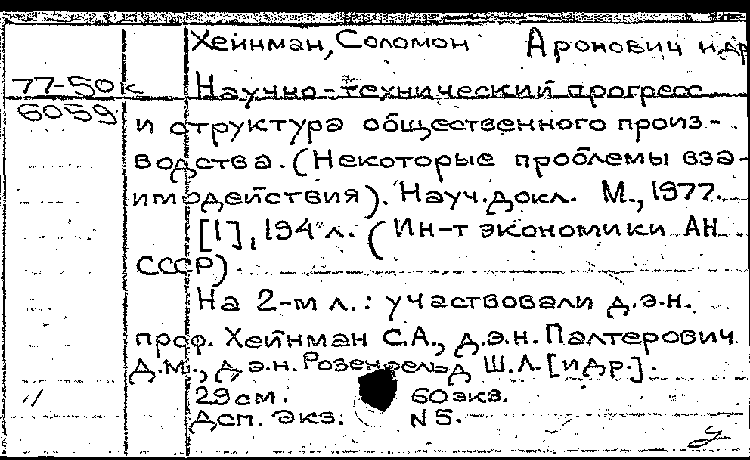 Хейнман, Соломон Аронович и др
77-50к Научно-технический прогресс
6059 и структура общественного произ-
водства. (Некоторые проблемы вза-
имодействия). Науч. докл. М., 1977.
[1], 194 л. (Ин-т экономики АН
СССР).
На 2-м л.: участвовали д.э.н.
проф. Хейнман С.А., д.э.н. Палтерович
Д.М., д.э.н. Розенфельд Ш.Л. [и др.].
29 см. 60 экз.
Дсп. Экз. N 5.